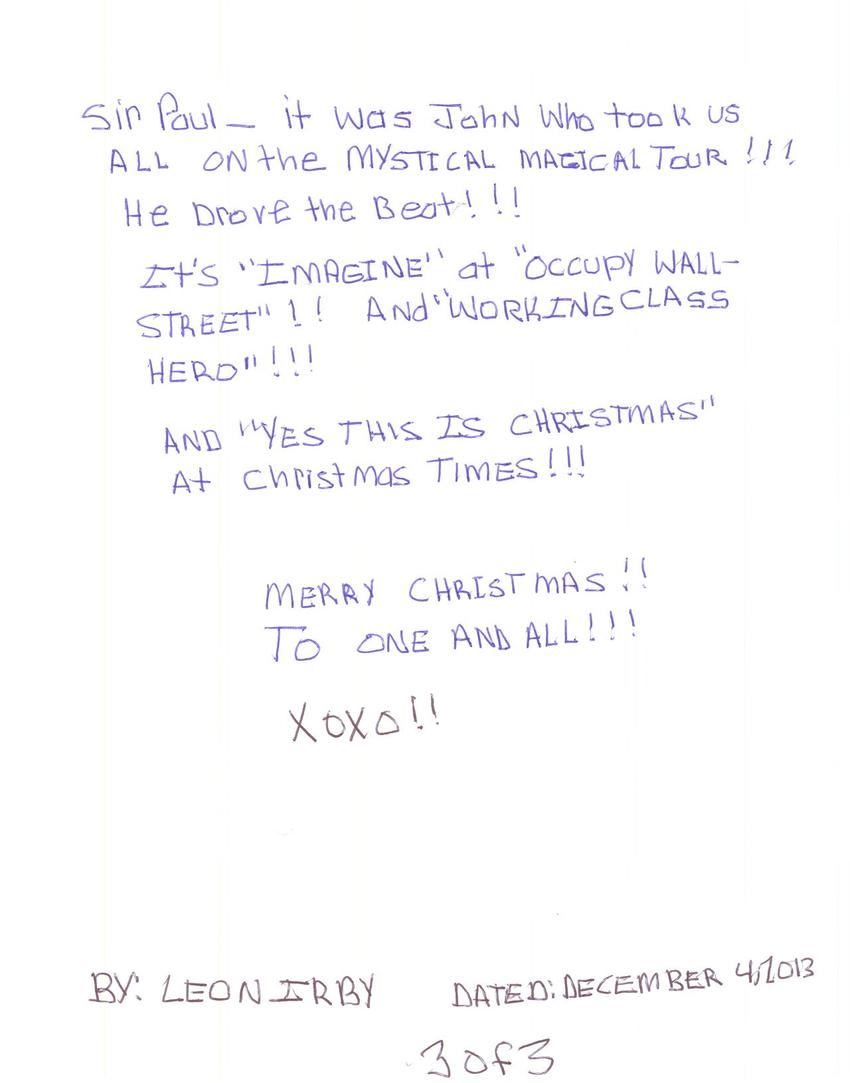 Sir Paul — it was John who took us
ALL ON the MYSTICAL MAGICAL TOUR !!!
He Drove the Beat!!!
It's "IMAGINE" at "OCCUPY WALL-
STREET"!! And "WORKING CLASS
HERO"!!!
AND "YES THIS IS CHRISTMAS"
At Christmas TIMES!!!
MERRY CHRISTMAS!!
TO ONE AND ALL!!!
XOXO!!
BY: LEON IRBY DATED: DECEMBER 4, 2013
3 of 3